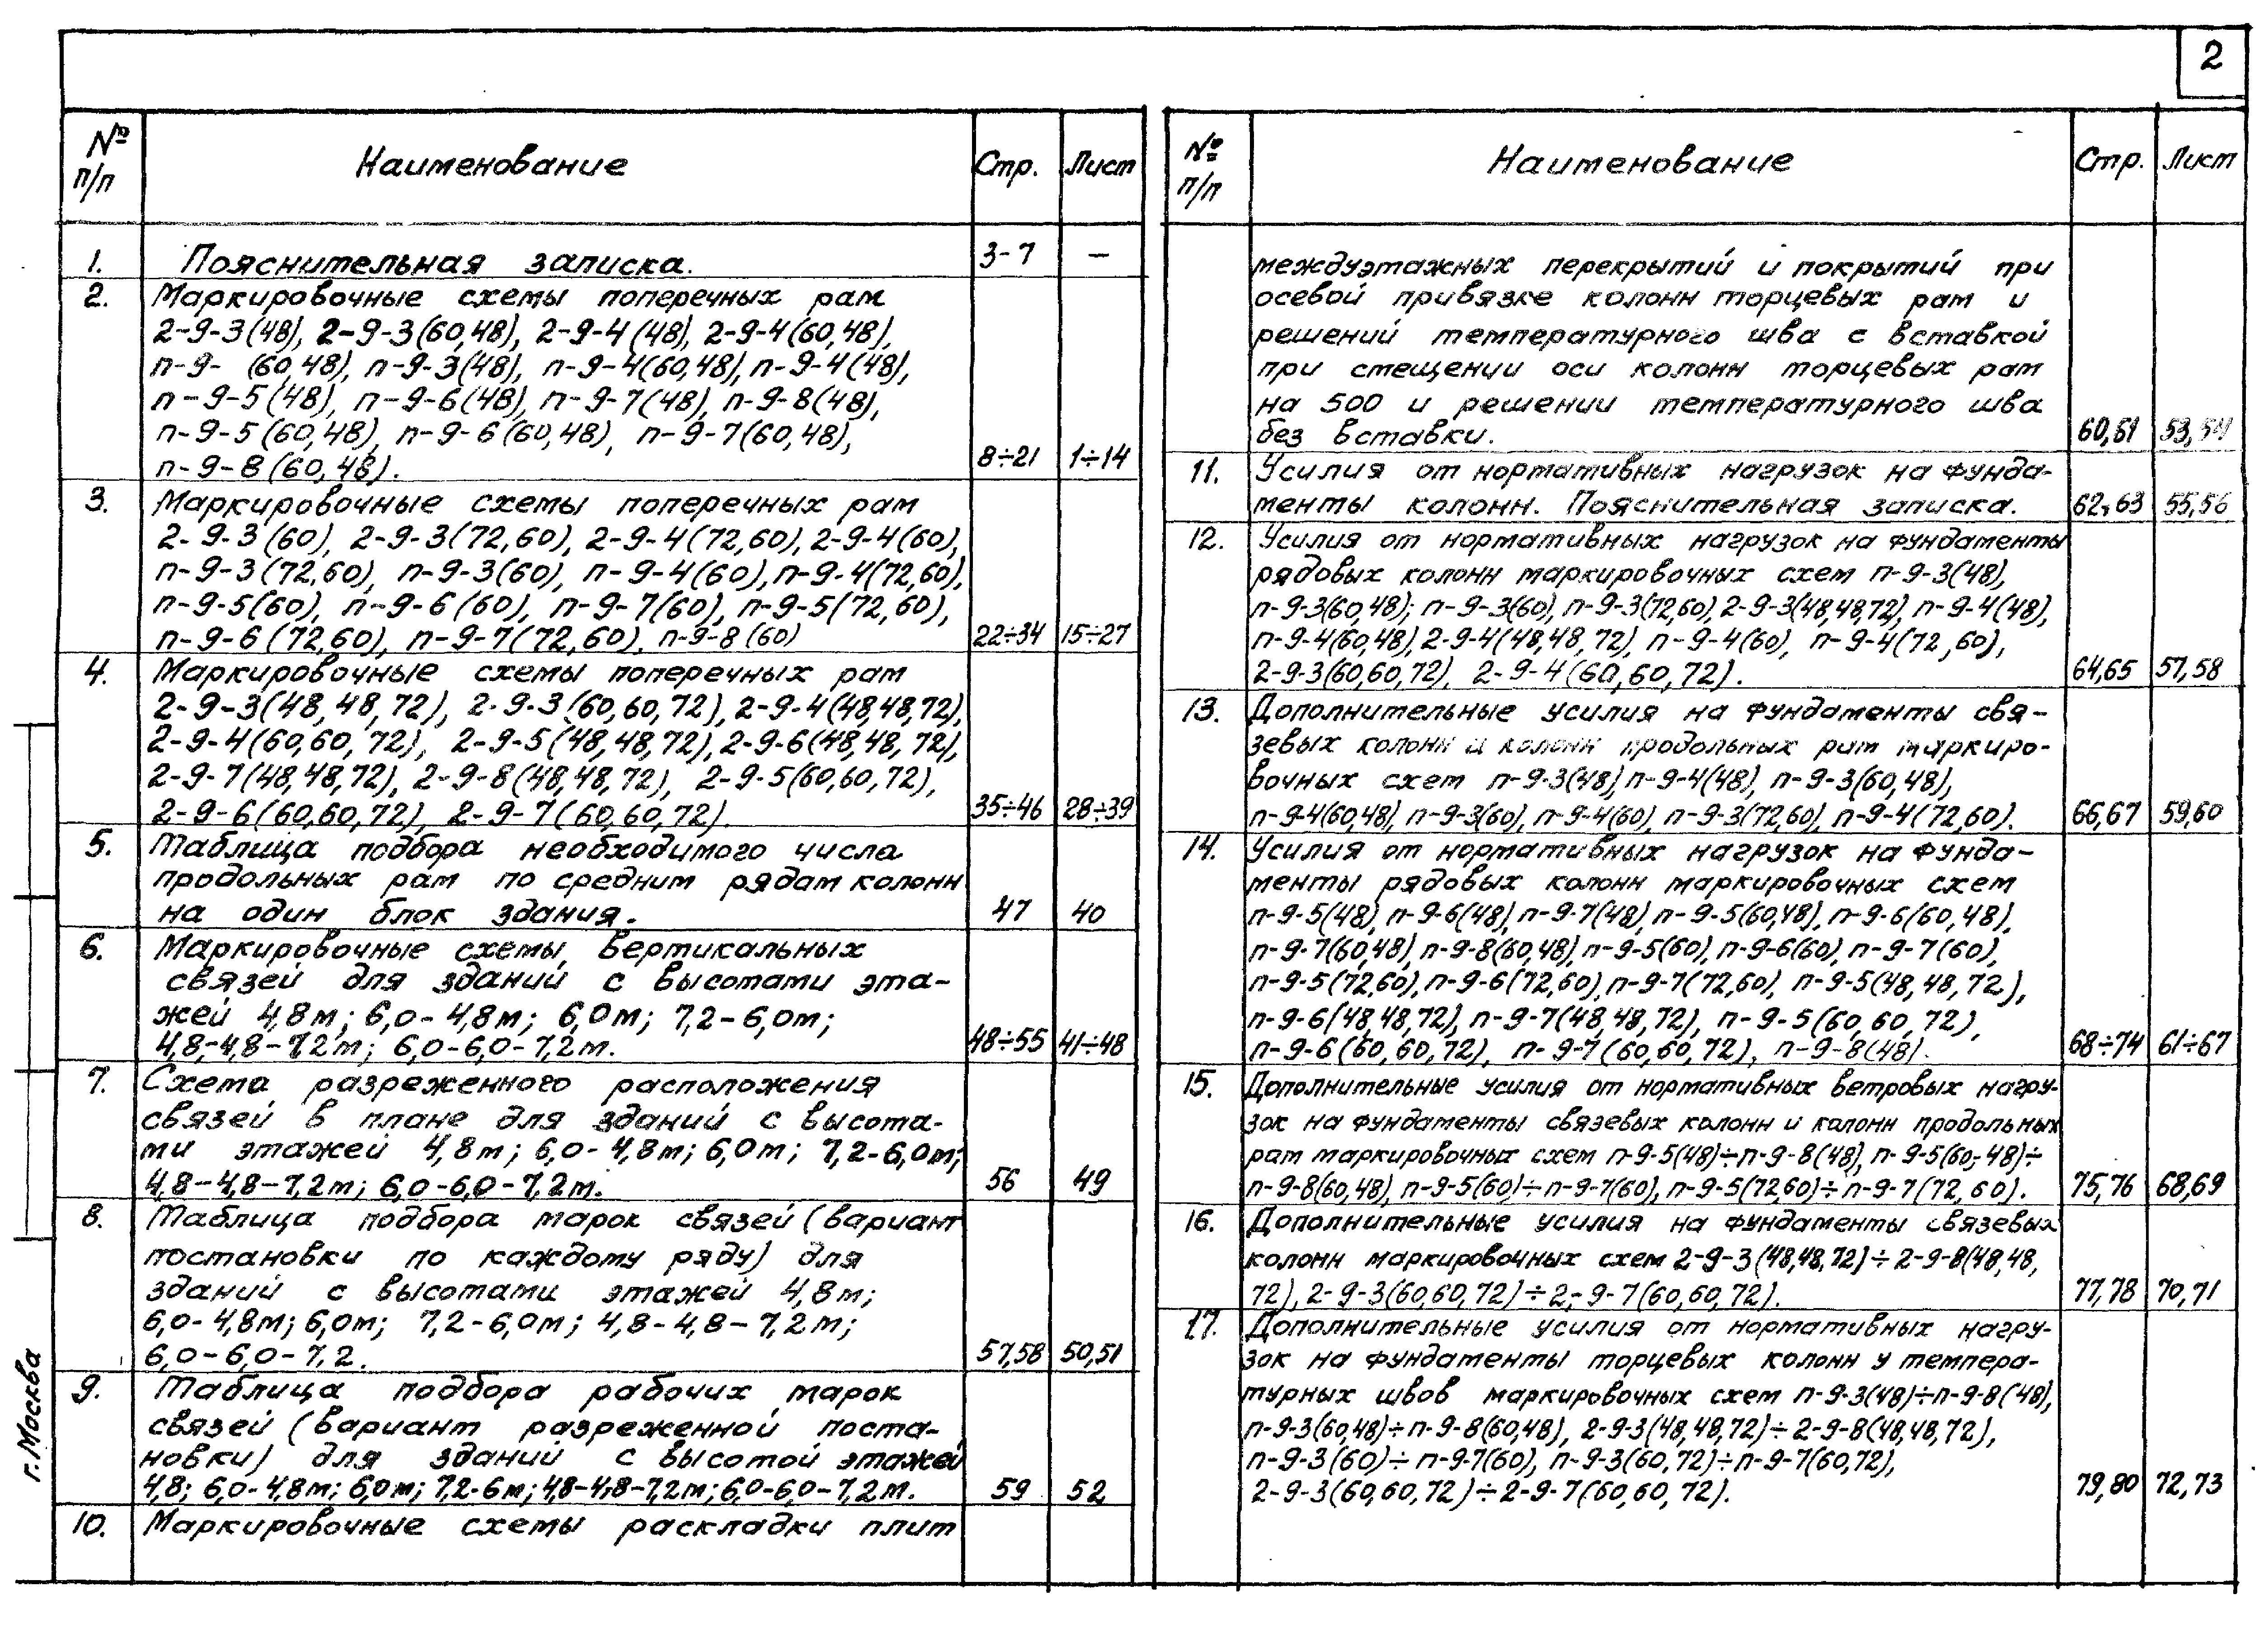 2
№ п/п Наименование Стр. Лист
1. Пояснительная записка. 3-7 —
2. Маркировочные схемы поперечных рам
2-9-3(48), 2-9-3(60,48), 2-9-4(48), 2-9-4(60,48),
п-9- (60,48), п-9-3(48), п-9-4(60,48), п-9-4(48),
п-9-5(48), п-9-6(48), п-9-7(48), п-9-8(48),
п-9-5(60,48), п-9-6(60,48), п-9-7(60,48),
п-9-8(60,48). 8÷21 1÷14
3. Маркировочные схемы поперечных рам
2-9-3(60), 2-9-3(72,60), 2-9-4(72,60), 2-9-4(60),
п-9-3(72,60), п-9-3(60), п-9-4(60), п-9-4(72,60),
п-9-5(60), п-9-6(60), п-9-7(60), п-9-5(72,60),
п-9-6(72,60), п-9-7(72,60), п-9-8(60) 22÷34 15÷27
4. Маркировочные схемы поперечных рам
2-9-3(48,48,72), 2-9-3(60,60,72), 2-9-4(48,48,72),
2-9-4(60,60,72), 2-9-5(48,48,72), 2-9-6(48,48,72),
2-9-7(48,48,72), 2-9-8(48,48,72), 2-9-5(60,60,72),
2-9-6(60,60,72), 2-9-7(60,60,72). 35÷46 28÷39
5. Таблица подбора необходимого числа
продольных рам по средним рядам колонн
на один блок здания. 47 40
6. Маркировочные схемы вертикальных
связей для зданий с высотами эта-
жей 4,8м; 6,0-4,8м; 6,0м; 7,2-6,0м;
4,8-4,8-7,2м; 6,0-6,0-7,2м. 48÷55 41÷48
7. Схема разреженного расположения
связей в плане для зданий с высота-
ми этажей 4,8м; 6,0-4,8м; 6,0м; 7,2-6,0м;
4,8-4,8-7,2м; 6,0-6,0-7,2м. 56 49
8. Таблица подбора марок связей (вариант
постановки по каждому ряду) для
зданий с высотами этажей 4,8м;
6,0-4,8м; 6,0м; 7,2-6,0м; 4,8-4,8-7,2м;
6,0-6,0-7,2. 57,58 50,51
9. Таблица подбора рабочих марок
связей (вариант разреженной поста-
новки) для зданий с высотой этажей
4,8; 6,0-4,8м; 6,0м; 7,2-6м; 4,8-4,8-7,2м; 6,0-6,0-7,2м. 59 52
10. Маркировочные схемы раскладки плит
№ п/п Наименование Стр. Лист
междуэтажных перекрытий и покрытий при
осевой привязке колонн торцевых рам и
решений температурного шва с вставкой
при смещении оси колонн торцевых рам
на 500 и решении температурного шва
без вставки. 60,61 53,54
11. Усилия от нормативных нагрузок на фунда-
менты колонн. Пояснительная записка. 62,63 55,56
12. Усилия от нормативных нагрузок на фундаменты
рядовых колонн маркировочных схем п-9-3(48),
п-9-3(60,48); п-9-3(60), п-9-3(72,60), 2-9-3(48,48,72), п-9-4(48),
п-9-4(60,48), 2-9-4(48,48,72), п-9-4(60), п-9-4(72,60),
2-9-3(60,60,72), 2-9-4(60,60,72). 64,65 57,58
13. Дополнительные усилия на фундаменты свя-
зевых колонн и колонн продольных рам маркиро-
вочных схем п-9-3(48), п-9-4(48), п-9-3(60,48),
п-9-4(60,48), п-9-3(60), п-9-4(60), п-9-3(72,60), п-9-4(72,60). 66,67 59,60
14. Усилия от нормативных нагрузок на фунда-
менты рядовых колонн маркировочных схем
п-9-5(48), п-9-6(48), п-9-7(48), п-9-5(60,48), п-9-6(60,48),
п-9-7(60,48), п-9-8(60,48), п-9-5(60), п-9-6(60), п-9-7(60),
п-9-5(72,60), п-9-6(72,60), п-9-7(72,60), п-9-5(48,48,72),
п-9-6(48,48,72), п-9-7(48,48,72), п-9-5(60,60,72),
п-9-6(60,60,72), п-9-7(60,60,72), п-9-8(48). 68÷74 61÷67
15. Дополнительные усилия от нормативных ветровых нагру-
зок на фундаменты связевых колонн и колонн продольных
рам маркировочных схем п-9-5(48)÷п-9-8(48), п-9-5(60,-48)÷
п-9-8(60,48), п-9-5(60)÷п-9-7(60), п-9-5(72,60)÷п-9-7(72,60). 75,76 68,69
16. Дополнительные усилия на фундаменты связевых
колонн маркировочных схем 2-9-3(48,48,72)÷2-9-8(48,48,
72), 2-9-3(60,60,72)÷2-9-7(60,60,72). 77,78 70,71
17. Дополнительные усилия от нормативных нагру-
зок на фундаменты торцевых колонн у темпера-
турных швов маркировочных схем п-9-3(48)÷п-9-8(48),
п-9-3(60,48)÷п-9-8(60,48), 2-9-3(48,48,72)÷2-9-8(48,48,72),
п-9-3(60)÷п-9-7(60), п-9-3(60,72)÷п-9-7(60,72),
2-9-3(60,60,72)÷2-9-7(60,60,72). 79,80 72,73
г. Москва